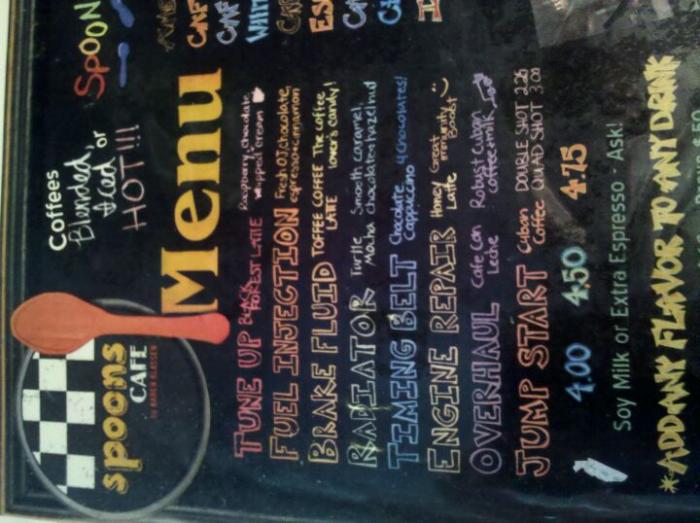 spoons
CAFE
Coffees
Blended,
Iced, or
HOT!!!
SPOON
Menu
TUNE UP BLACK FOREST LATTE Raspberry, chocolate whipped cream
FUEL INJECTION Fresh OJ, chocolate, espresso + cinnamon
BRAKE FLUID TOFFEE COFFEE LATTE The coffee lover's candy!
RADIATOR Turtle Mocha Smooth caramel, chocolate + hazelnut
TIMING BELT Chocolate Cappuccino 4 chocolates!
ENGINE REPAIR Honey Latte Great immunity Boost
OVERHAUL Cafe Con Leche Robust Cuban coffee + milk
JUMP START Cuban Coffee DOUBLE SHOT 2.25
QUAD SHOT 3.00
4.00 4.50 4.75
Soy Milk or Extra Espresso - Ask!
*ADD ANY FLAVOR TO ANY DRINK